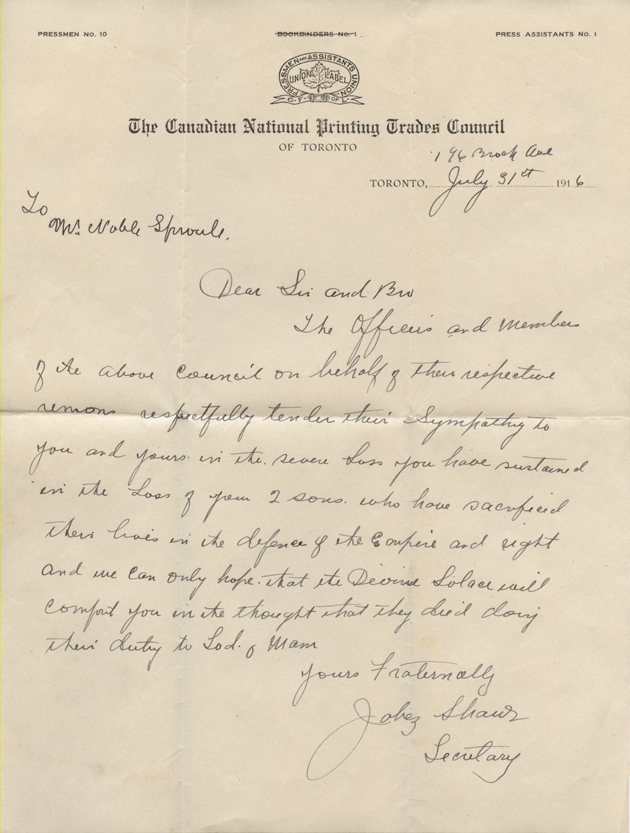 PRESSMEN No. 10
BOOKBINDERS No. 1
PRESS ASSISTANTS No. 1
PRESSMEN AND ASSISTANTS UNION
UNION LABEL
C.F. OF L.
The Canadian National Printing Trades Council
OF TORONTO
196 Brock Ave
TORONTO, July 31st 1916
To
Mr. Noble Sproule.
Dear Sir and Bro
The Officers and Members
of the above Council on behalf of their respective
unions respectfully tender their Sympathy to
you and yours in the severe Loss you have sustained
in the Loss of your 2 sons. who have sacrificed
their lives in the defence of the Empire and right
and we can only hope that the Divine Solace will
comfort you in the thought that they died doing
their duty to God. & Man
Yours Fraternally
Jabez Shaw
Secretary